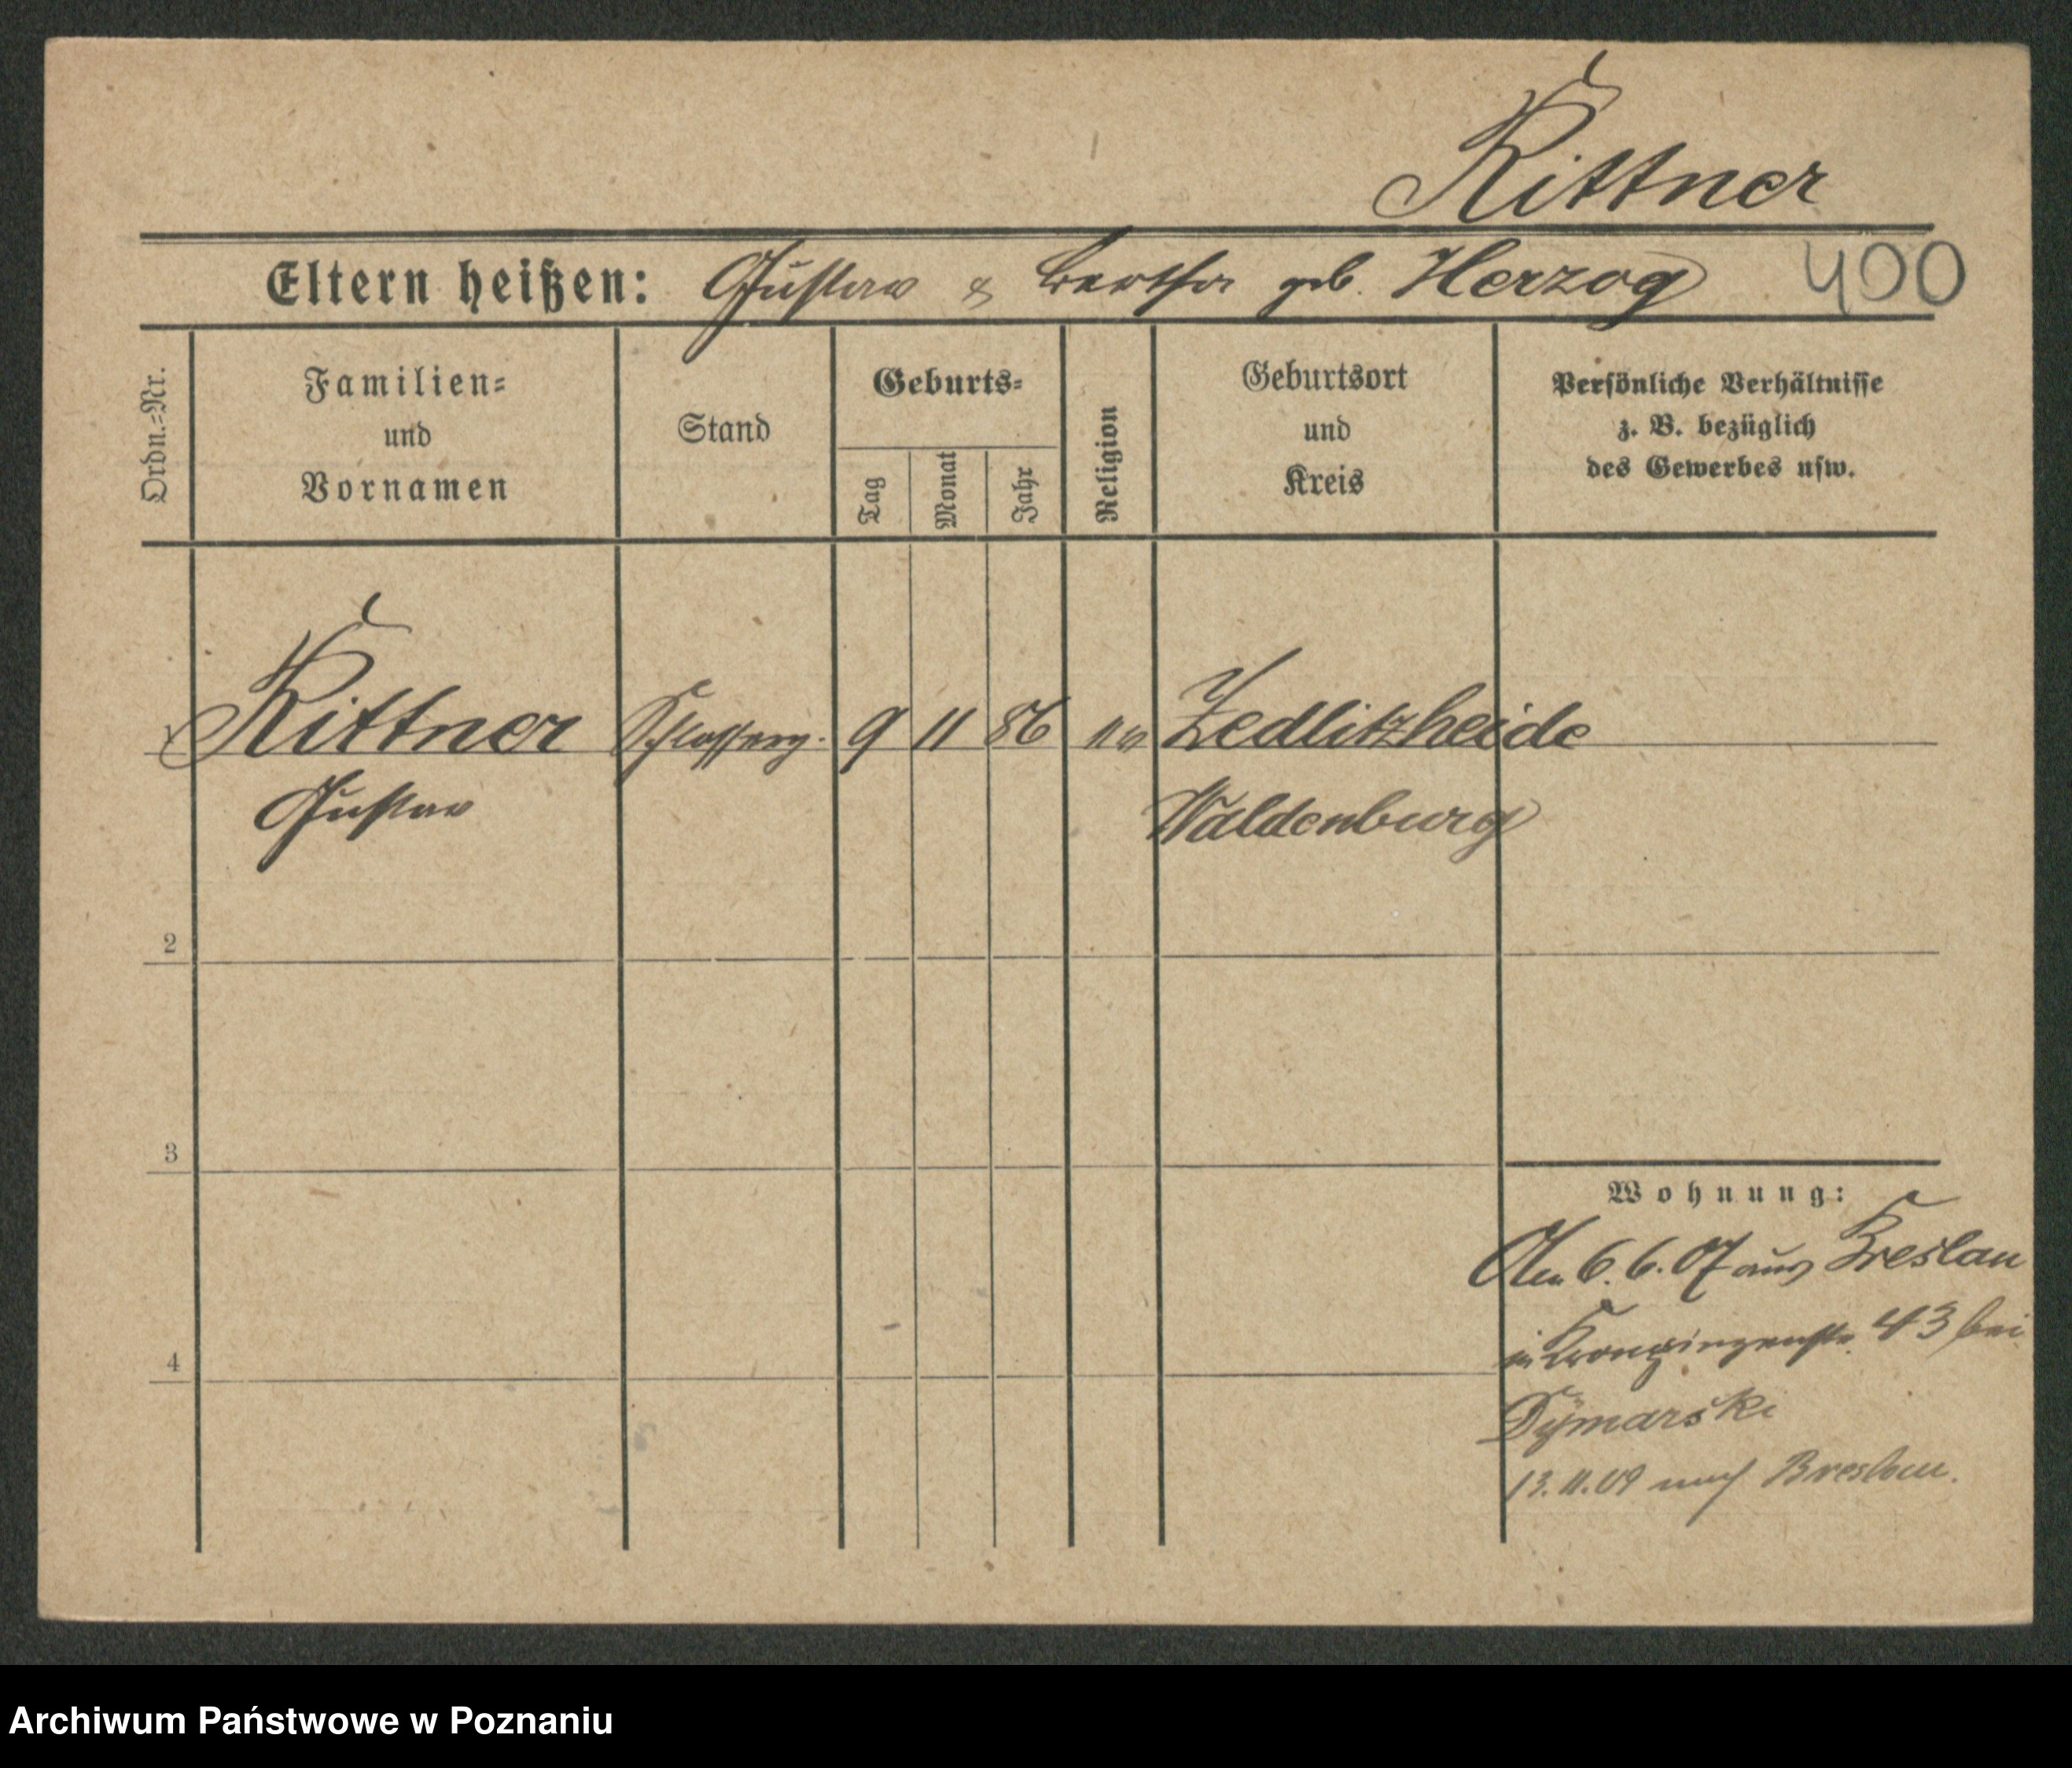 Kittner
Eltern heißen: Gustav & Bertha geb. Herzog 400
Ordn.=Nr.
Familien=
und
Vornamen
Stand
Geburts=
Tag
Monat
Jahr
Religion
Geburtsort
und
Kreis
Persönliche Verhältnisse
z. B. bezüglich
des Gewerbes usw.
1 Kittner 9 11 86 Zedlitzheide
Gustav Waldenburg
2
3
4
Wohnung:
6.6.07 aus Breslau
in Kronprinzenstr. 43 bei
Dymarski
13.11.09 nach Breslau.
Archiwum Państwowe w Poznaniu